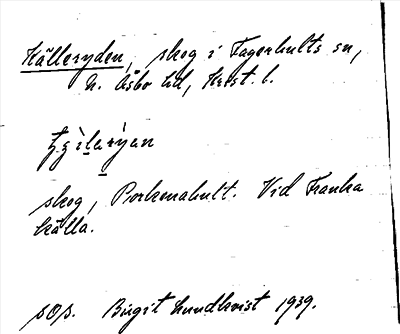 Källeryden, skog i Fagerhults sn,
N. Åsbo hd, Krist. l.
skog, Porkenahult. Vid Franka
källa.
SOp. Birgit Lundkvist 1939.